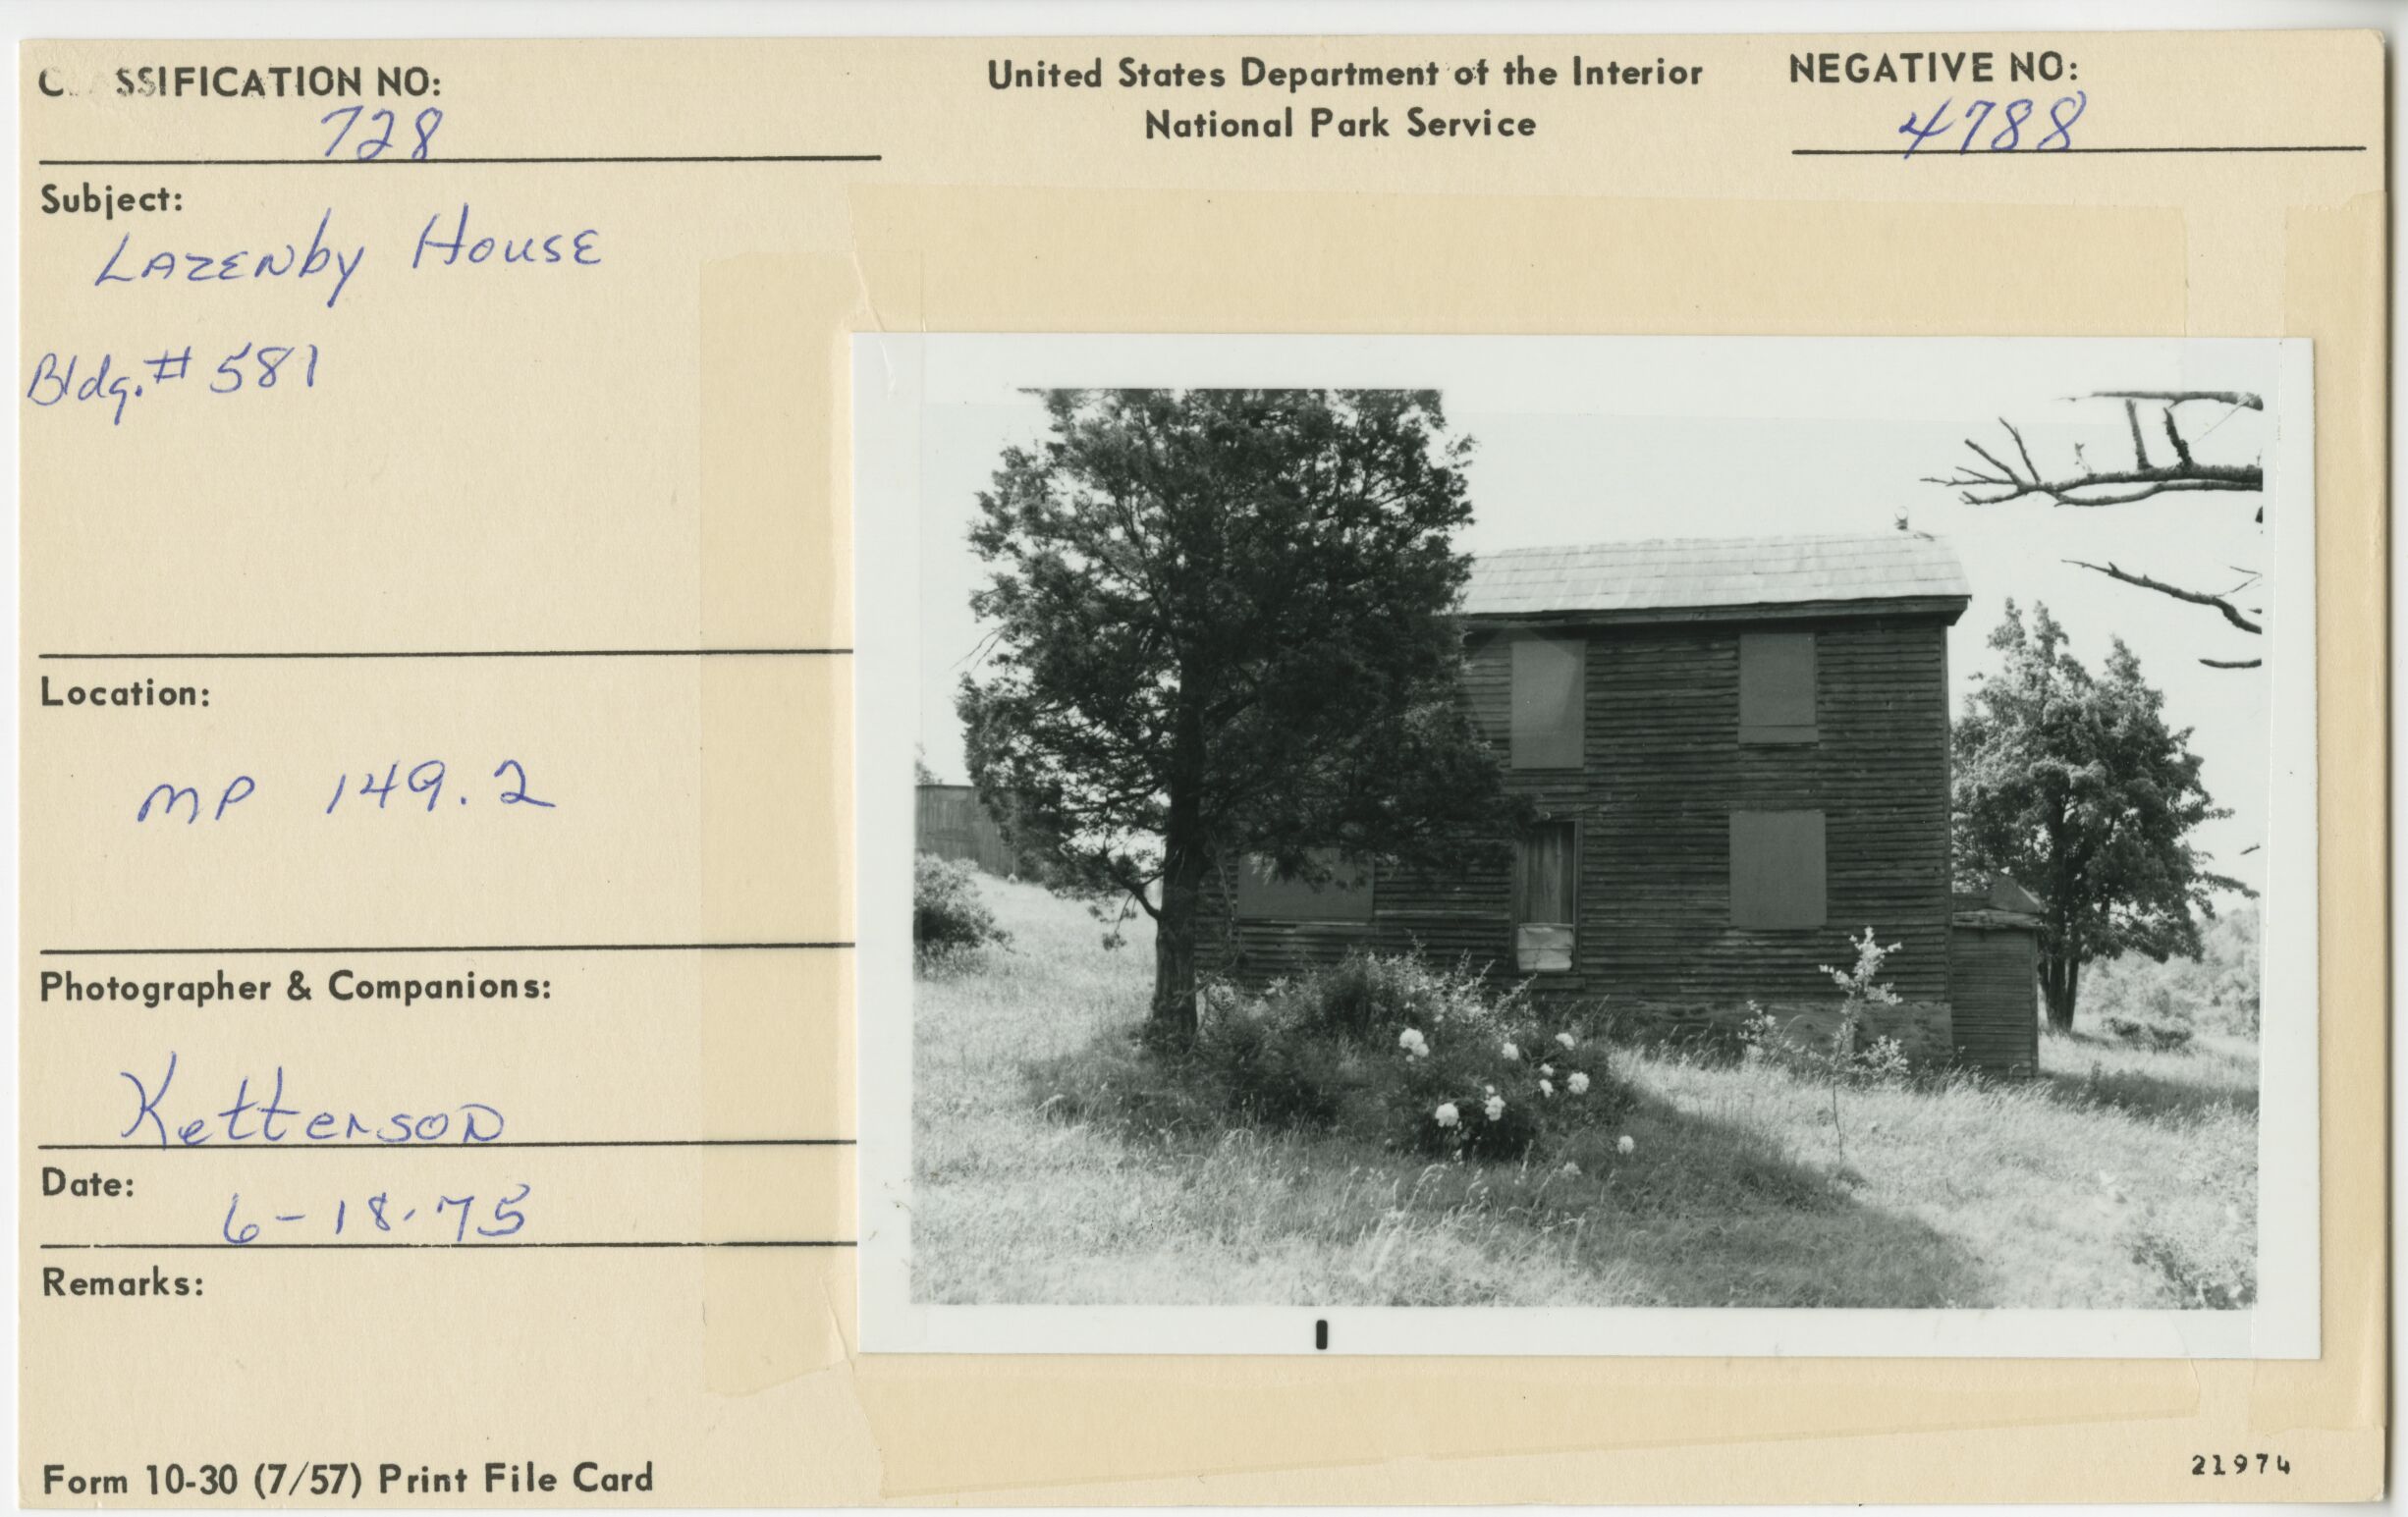 C SSIFICATION NO:
728
United States Department of the Interior
National Park Service
NEGATIVE NO:
4788
Subject:
LAZENby HousE
Bldg. # 581
Location:
MP 149.2
Photographer & Companions:
Ketterson
Date:
6-18-75
Remarks:
Form 10-30 (7/57) Print File Card
21974